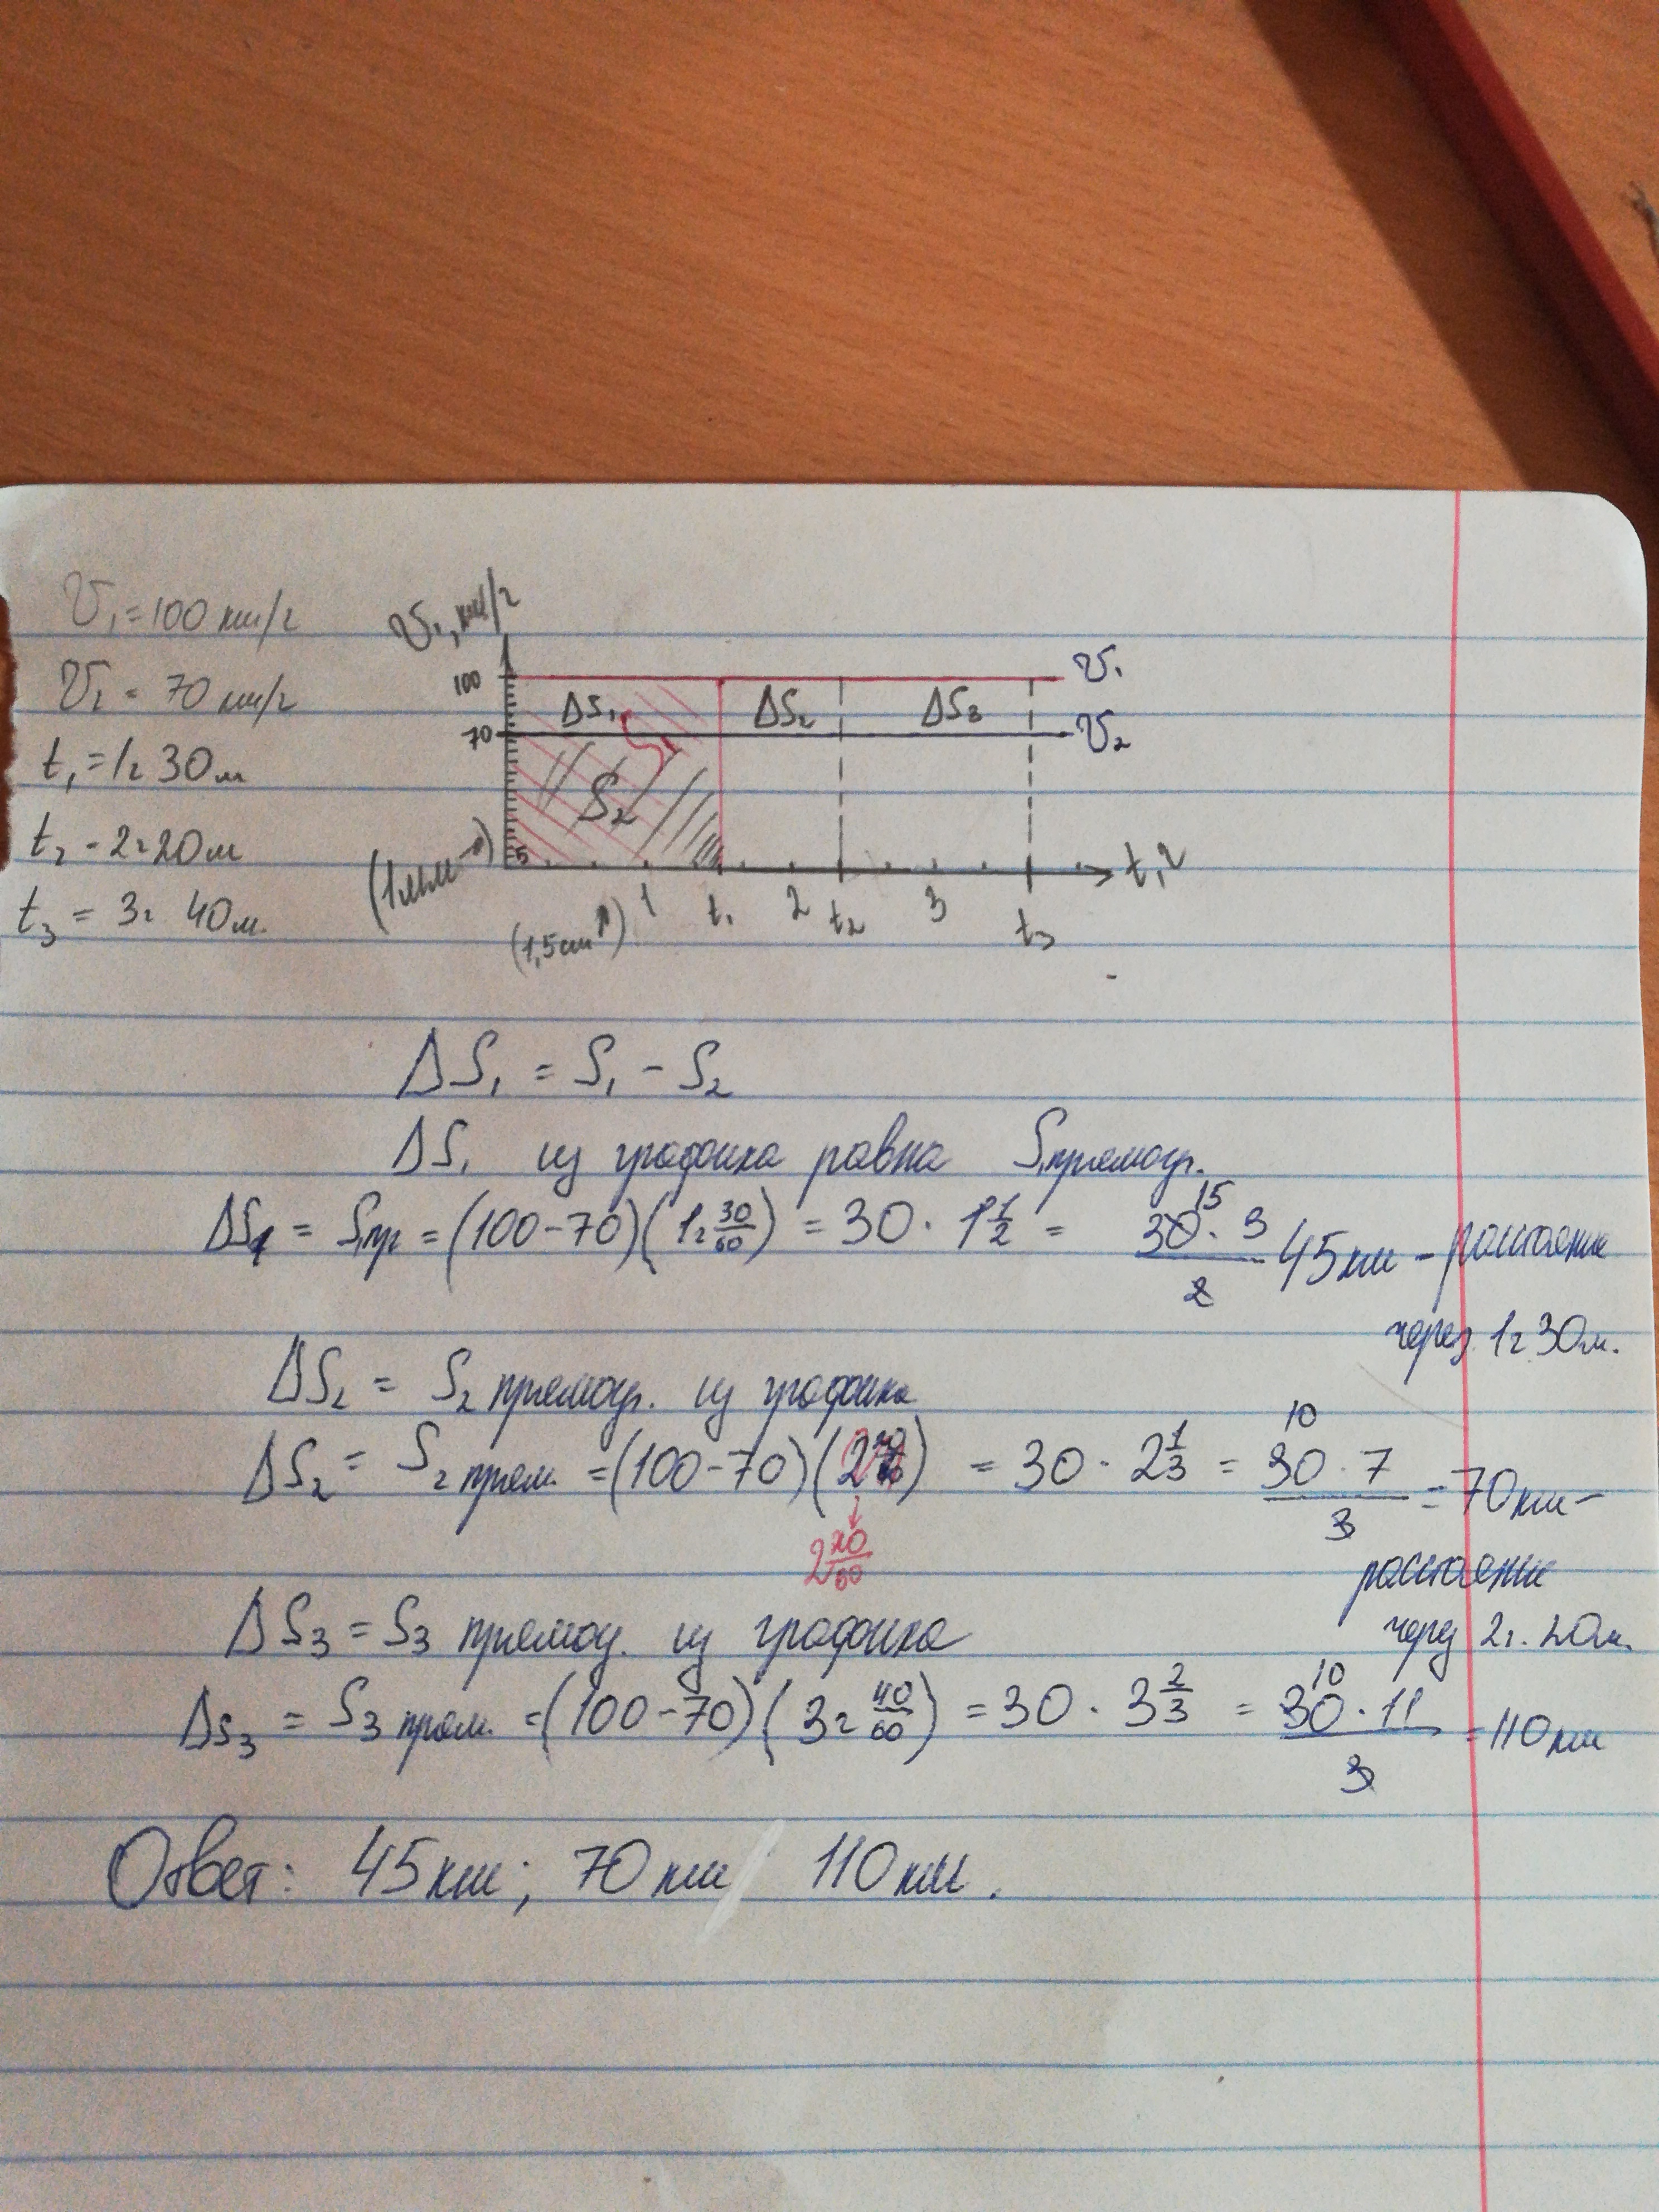 V₁ = 100 км/ч
V₂ = 70 км/ч
t₁ = 1ч 30м
t₂ - 2ч 20м
t₃ = 3ч 40м.
V₁, км/ч
100
70
5
ΔS₁
ΔS₂
ΔS₃
S₁
S₂
V₁
V₂
1 t₁ 2 t₂ 3 t₃
t, ч
(1мм →)
(1,5см ↗)
ΔS₁ = S₁ - S₂
ΔS₁ из графика равна S₁прямоуг.
ΔS₁ = S₁пр = (100-70)(1ч 30/60) = 30 · 1 1/2 = 30 · 3 / 2 15 45 км - расстояние
через 1ч 30м.
ΔS₂ = S₂ прямоуг. из графика
ΔS₂ = S₂ прям. = (100-70)(2 20/60) = 30 · 2 1/3 = 30 · 7 / 3 10 = 70 км -
2 20/60
расстояние
через 2ч. 20м.
ΔS₃ = S₃ прямоу. из графика
ΔS₃ = S₃ прям. = (100-70)(3ч 40/60) = 30 · 3 2/3 = 30 · 11 / 3 10 = 110 км
Ответ: 45 км; 70 км 110 км.